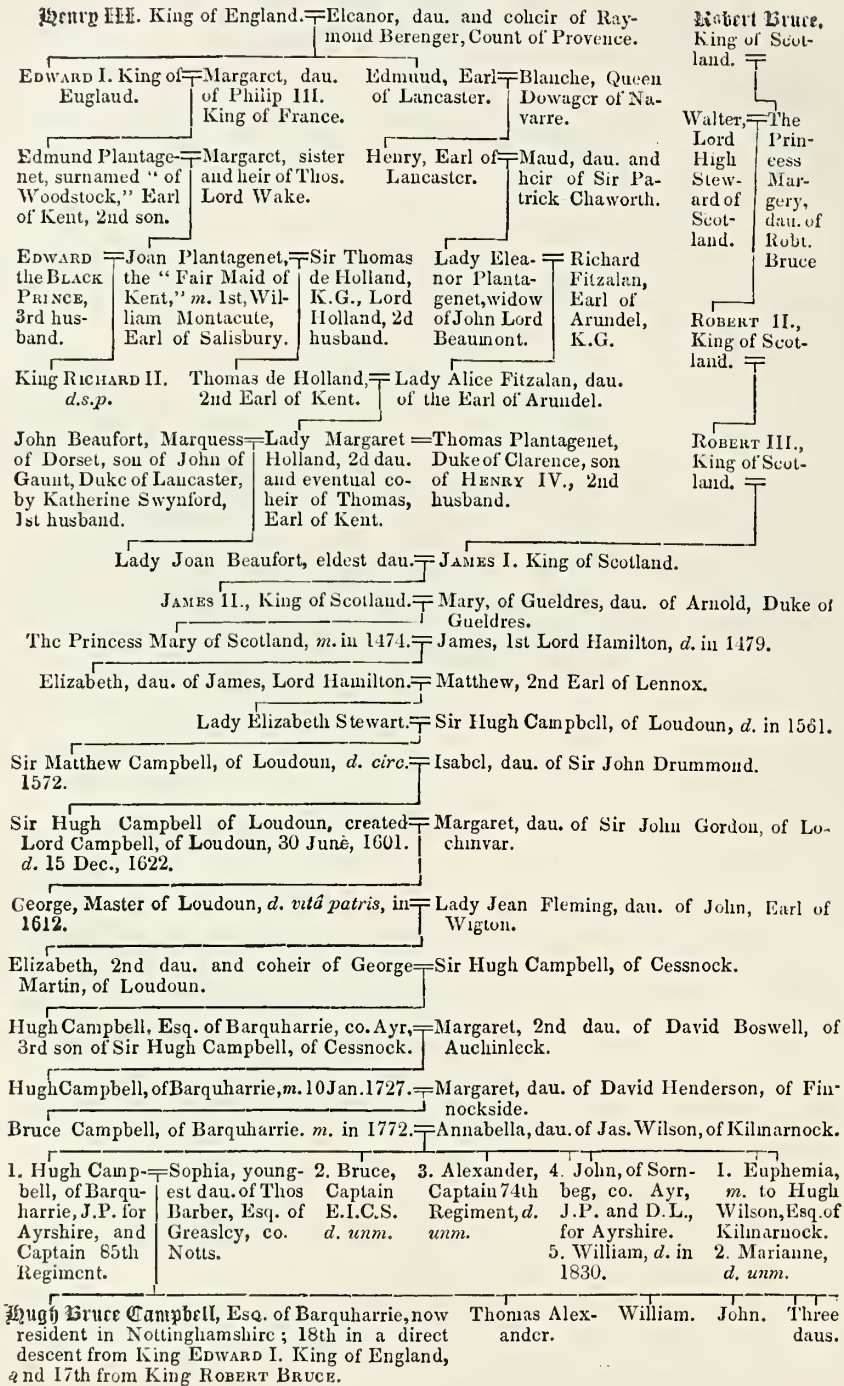 Henry III. King of England.
Eleanor, dau. and coheir of Ray-
mond Berenger, Count of Provence.
Robert Bruce,
King of Scot-
land.
EDWARD I. King of
England.
Margaret, dau.
of Philip III.
King of France.
Edmund, Earl
of Lancaster.
Blanche, Queen
Dowager of Na-
varre.
Walter,
Lord
High
Stew-
ard of
Scot-
land.
The
Prin-
cess
Mar-
gery,
dau. of
Robt.
Bruce
Edmund Plantage-
net, surnamed "of
Woodstock," Earl
of Kent, 2nd son.
Margaret, sister
and heir of Thos.
Lord Wake.
Henry, Earl of
Lancaster.
Maud, dau. and
heir of Sir Pa-
trick Chaworth.
EDWARD
the BLACK
PRINCE,
3rd hus-
band.
Joan Plantagenet,
the "Fair Maid of
Kent," m. 1st, Wil-
liam Montacute,
Earl of Salisbury.
Sir Thomas
de Holland,
K.G., Lord
Holland, 2d
husband.
Lady Elea-
nor Planta-
genet, widow
of John Lord
Beaumont.
Richard
Fitzalan,
Earl of
Arundel,
K.G.
ROBERT II.,
King of Scot-
land.
King RICHARD II.
d.s.p.
Thomas de Holland,
2nd Earl of Kent.
Lady Alice Fitzalan, dau.
of the Earl of Arundel.
John Beaufort, Marquess
of Dorset, son of John of
Gaunt, Duke of Lancaster,
by Katherine Swynford,
1st husband.
Lady Margaret
Holland, 2d dau.
and eventual co-
heir of Thomas,
Earl of Kent.
Thomas Plantagenet,
Duke of Clarence, son
of HENRY IV., 2nd
husband.
ROBERT III.,
King of Scot-
land.
Lady Joan Beaufort, eldest dau.
JAMES I. King of Scotland.
JAMES II., King of Scotland.
Mary, of Gueldres, dau. of Arnold, Duke of
Gueldres.
The Princess Mary of Scotland, m. in 1474.
James, 1st Lord Hamilton, d. in 1479.
Elizabeth, dau. of James, Lord Hamilton.
Matthew, 2nd Earl of Lennox.
Lady Elizabeth Stewart.
Sir Hugh Campbell, of Loudoun, d. in 1561.
Sir Matthew Campbell, of Loudoun, d. circ.
1572.
Isabel, dau. of Sir John Drummond.
Sir Hugh Campbell of Loudoun, created
Lord Campbell, of Loudoun, 30 June, 1601.
d. 15 Dec., 1622.
Margaret, dau. of Sir John Gordon, of Lo-
chinvar.
George, Master of Loudoun, d. vitâ patris, in
1612.
Lady Jean Fleming, dau. of John, Earl of
Wigton.
Elizabeth, 2nd dau. and coheir of George
Martin, of Loudoun.
Sir Hugh Campbell, of Cessnock.
Hugh Campbell, Esq. of Barquharrie, co. Ayr,
3rd son of Sir Hugh Campbell, of Cessnock.
Margaret, 2nd dau. of David Boswell, of
Auchinleck.
Hugh Campbell, of Barquharrie, m. 10 Jan. 1727.
Margaret, dau. of David Henderson, of Fin-
nockside.
Bruce Campbell, of Barquharrie. m. in 1772.
Annabella, dau. of Jas. Wilson, of Kilmarnock.
1. Hugh Camp-
bell, of Barqu-
harrie, J.P. for
Ayrshire, and
Captain 85th
Regiment.
Sophia, young-
est dau. of Thos
Barber, Esq. of
Greasley, co.
Notts.
2. Bruce,
Captain
E.I.C.S.
d. unm.
3. Alexander,
Captain 74th
Regiment, d.
unm.
4. John, of Sorn-
beg, co. Ayr,
J.P. and D.L.,
for Ayrshire.
5. William, d. in
1830.
1. Euphemia,
m. to Hugh
Wilson, Esq. of
Kilmarnock.
2. Marianne,
d. unm.
Hugh Bruce Campbell, Esq. of Barquharrie, now
resident in Nottinghamshire; 18th in a direct
descent from King EDWARD I. King of England,
and 17th from King ROBERT BRUCE.
Thomas Alex-
ander.
William.
John.
Three
daus.